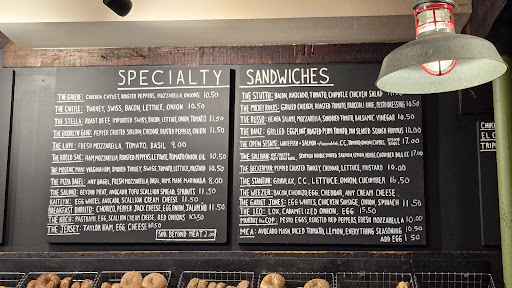 SPECIALTY
THE GREENE: CHICKEN CUTLET, ROASTED PEPPERS, MOZZARELLA, ONIONS 10.50
TURKEY, SWISS, BACON, LETTUCE, ONION 10.50
THE STELLA: ROAST BEEF, IMPORTED SWISS, BACON, LETTUCE, ONION, TOMATO
THE BROOKLYN PEPPER CRUSTED SIRLOIN, CHEDDAR, ROASTED PEPPERS, ONION 11.50
THE LUPE: FRESH MOZZARELLA, TOMATO, BASIL 9.00
THE ROCCO SAC: HAM, MOZZARELLA, ROASTED PEPPERS, LETTUCE, TOMATO, ONION, OIL 10.50
VIRGINIA HAM, SMOKED TURKEY, SWISS, TOMATO, LETTUCE, MUSTARD 10.50
THE PIZZA BAGEL: ANY BAGEL, FRESH MOZZARELLA, BASIL, HOME MADE MARINARA 8.00
THE SALMON: BEYOND MEAT, AVOCADO TOFU SCALLION SPREAD, SPROUTS 11.50
KAITLYN: EGG WHITES, AVOCADO, SCALLION CREAM CHEESE 11.50
BREAKFAST BURRITO: CHORIZO, PEPPER JACK CHEESE, EGG, ONION, JALAPEÑO 11.50
THE KOCH: PASTRAMI, EGG, SCALLION CREAM CHEESE, RED ONIONS 10.50
THE JERSEY: TAYLOR HAM, EGG, CHEESE 10.50
SUB. BEYOND MEAT 2.00
SANDWICHES
THE STUTTO: BACON, AVOCADO, TOMATO, CHIPOTLE CHICKEN SALAD
THE MICKEY RIVERS: GRILLED CHICKEN, ROASTED TOMATO, BROCCOLI RABE, PESTO DRESSING 10.50
THE RUSSO: GENOA SALAMI, MOZZARELLA, SUNDRIED TOMATO, BALSAMIC VINEGAR 10.50
THE DANZ: GRILLED EGGPLANT, ROASTED PLUM TOMATO, 10.00
THE OPEN SESAME: TOMATO, ONION, CAPERS
THE SULLIVAN: SCOTTISH DOUBLE SMOKED SALMON, LEMON, HONEY, CUCUMBER, DILL
THE BECKERTIME: PEPPER CRUSTED TURKEY, CHEDDAR, LETTUCE, MUSTARD 10.50
THE STANTON: GRAVLAX, CC, LETTUCE, ONION, CUCUMBER 14.50
THE WEEZER: BACON, CHOICE OF EGG, CHEDDAR, ANY CREAM CHEESE
THE GARRET JONES: EGG WHITES, CHICKEN SAUSAGE, ONION, SPINACH 11.50
THE LEO: LOX, CARAMELIZED ONION, EGG 15.50
MURRAY THE COP: PESTO, EGGS, ROASTED RED PEPPERS, FRESH MOZZARELLA 10.00
MICA: AVOCADO MASH, DICED TOMATO, LEMON, EVERYTHING SEASONING 10.50
ADD EGG 1.50
EL C
TRIP